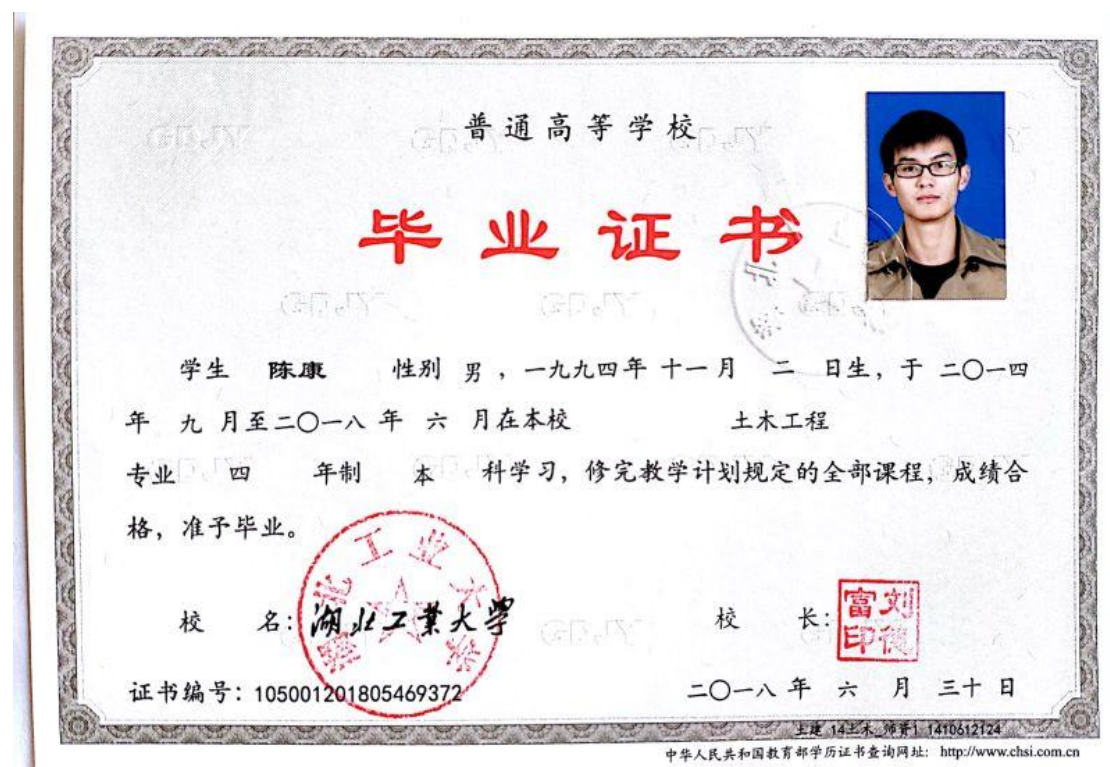 普通高等学校
毕业证书
学生 陈康 性别 男 ，一九九四年 十一月 二 日生，于 二〇一四
年 九 月至二〇一八 年 六 月在本校 土木工程
专业 四 年制 本 科学习，修完教学计划规定的全部课程，成绩合
格，准予毕业。
湖北工业大学
校 名：湖北工業大學 校 长：刘德富印
证书编号：105001201805469372 二〇一八 年 六 月 三十 日
土建 14土木_师资1 1410612124
中华人民共和国教育部学历证书查询网址： http://www.chsi.com.cn